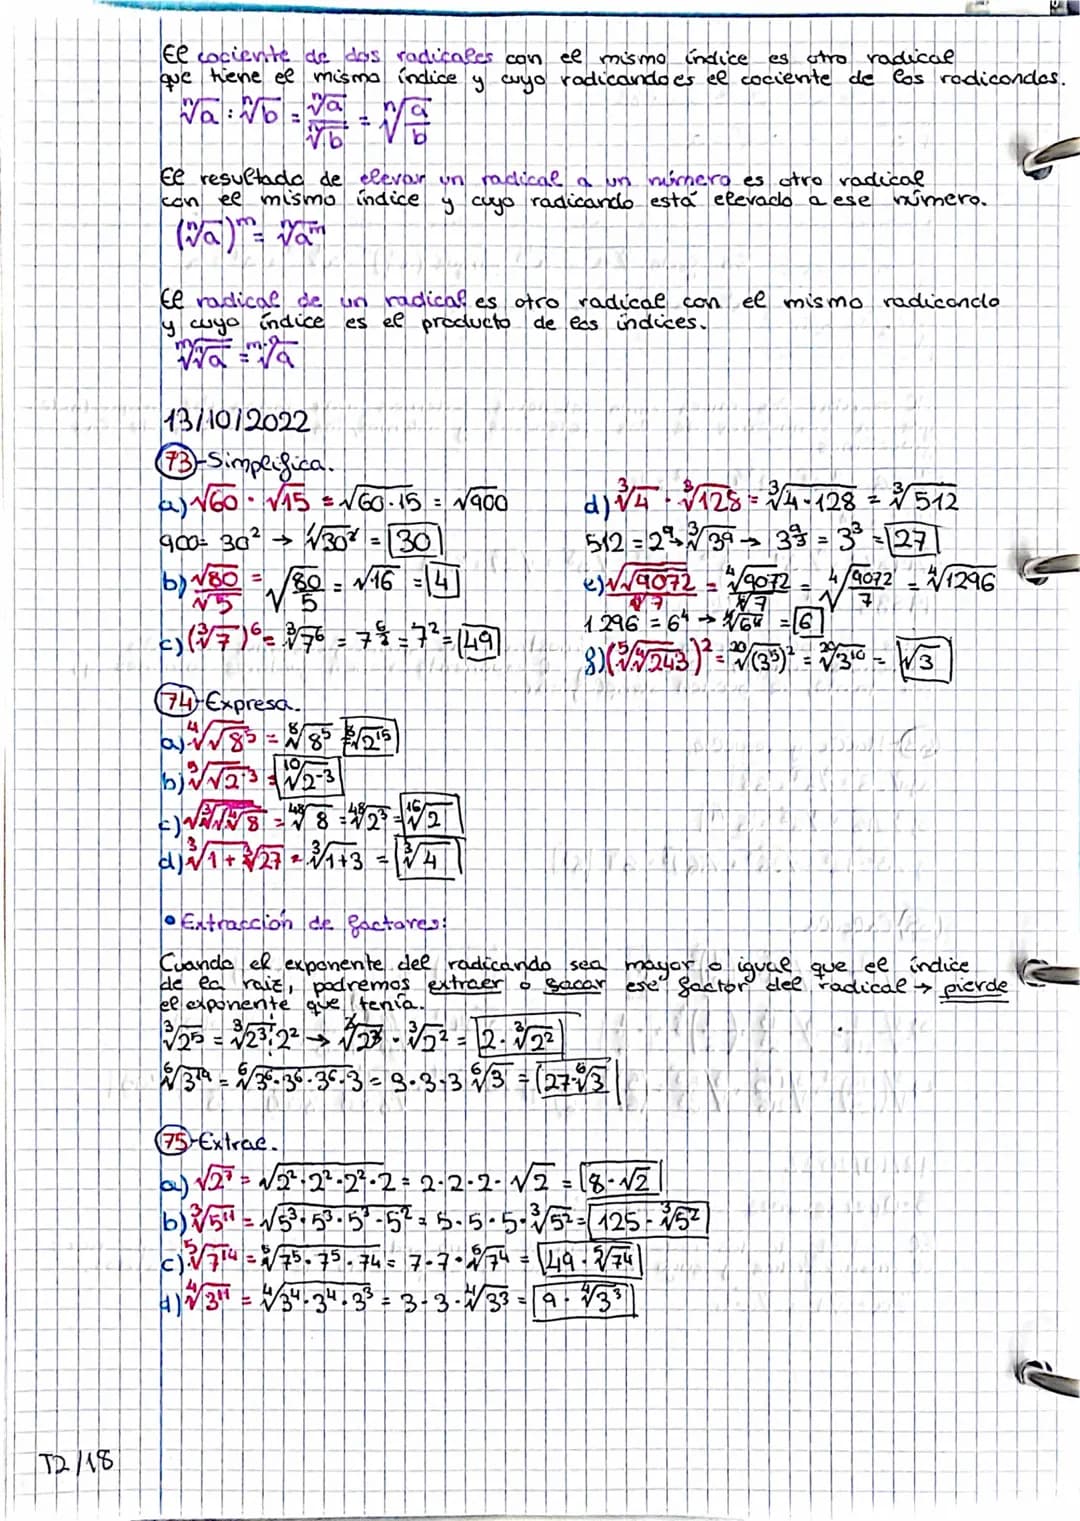 El cociente de dos radicales con el mismo índice es otro radical
que tiene el mismo índice y cuyo radicando es el cociente de los radicandos.
ⁿ√a : ⁿ√b = ⁿ√a / ⁿ√b = ⁿ√(a/b)
El resultado de elevar un radical a un número es otro radical
con el mismo índice y cuyo radicando está elevado a ese número.
(ⁿ√a)ᵐ = ⁿ√aᵐ
El radical de un radical es otro radical con el mismo radicando
y cuyo índice es el producto de los índices.
ᵐ√ⁿ√a = ᵐ·ⁿ√a
13/10/2022
73-Simplifica.
a) √60 · √15 = √60·15 = √900
900= 30² → √30² = 30
b) √80 / √5 = √(80/5) = √16 = 4
c) (³√7)⁶ = ³√7⁶ = 7^(6/3) = 7² = 49
d) ³√4 · ³√128 = ³√4·128 = ³√512
512 = 2⁹ → ³√3⁹ → 3^(9/3) = 3³ = 27
e) √√9072 / ⁴√7 = ⁴√9072 / ⁴√7 = ⁴√(9072/7) = ⁴√1296
1296 = 6⁴ → ⁴√6⁴ = 6
f) (⁵√⁴√243)² = ²⁰√(3⁵)² = ²⁰√3¹⁰ = √3
74-Expresa.
a) ⁴√√8⁵ = ⁸√8⁵ = ⁸√2¹⁵
b) ⁵√√2⁻³ = ¹⁰√2⁻³
c) √³√√⁴√8 = ⁴⁸√8 = ⁴⁸√2³ = ¹⁶√2
d) ³√1 + ³√27 = ³√1+3 = ³√4
• Extracción de factores:
Cuando el exponente del radicando sea mayor o igual que el índice
de la raíz, podremos extraer o sacar ese factor del radical → pierde
el exponente que tenía.
³√2⁵ = ³√2³·2² → ³√2³ · ³√2² = 2 · ³√2²
⁶√3¹⁹ = ⁶√3⁶·3⁶·3⁶·3 = 3·3·3 ⁶√3 = 27·⁶√3
75-Extrae.
a) √2⁷ = √2²·2²·2²·2 = 2·2·2· √2 = 8·√2
b) ³√5¹¹ = √5³·5³·5³·5² = 5·5·5·³√5² = 125·³√5²
c) ⁵√7¹⁴ = ⁵√7⁵·7⁵·7⁴ = 7·7·⁵√7⁴ = 49·⁵√7⁴
d) ⁴√3¹¹ = ⁴√3⁴·3⁴·3³ = 3·3·⁴√3³ = 9·⁴√3³
T2/18